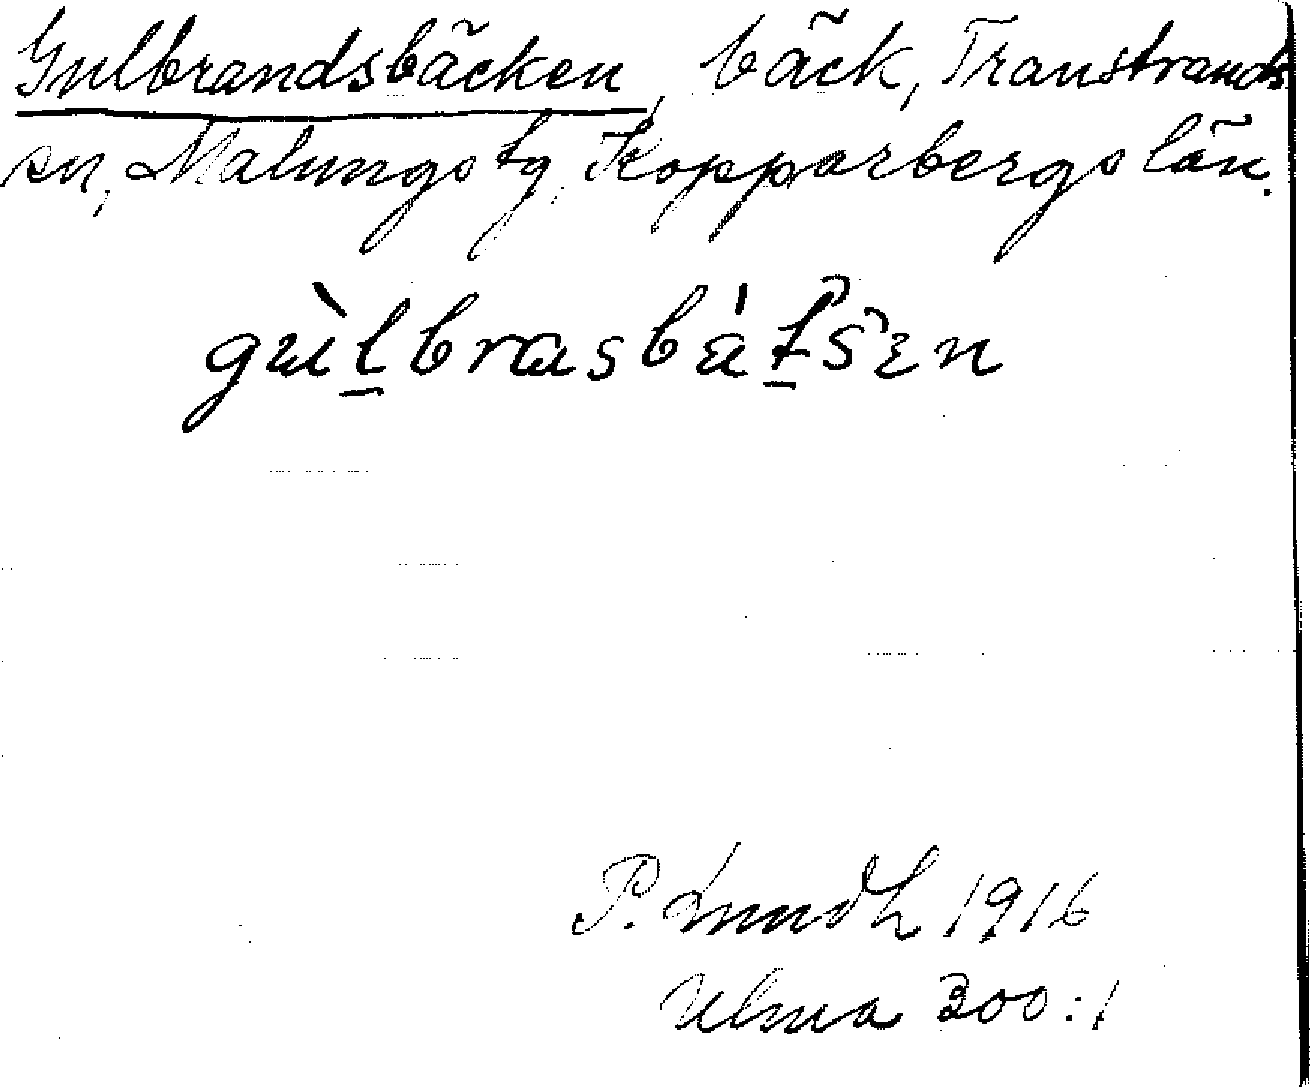 Gulbrandsbäcken, bäck, Transtrands
sn, Malungs tg, Kopparbergs län.
P. Lundh 1916
Ulma 300:1